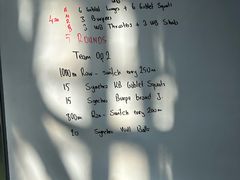 6 Goblet Lunges + 6 Goblet Squats
3 Burpees
WB Thrusters + 2 WB
5 ROUNDS
Team OP 2
1000m Row - switch every 250m
15 Synchro WB Goblet Squats
15 Synchro Burpe
800m Row - Switch every 200m
20 Synchro Wall Balls